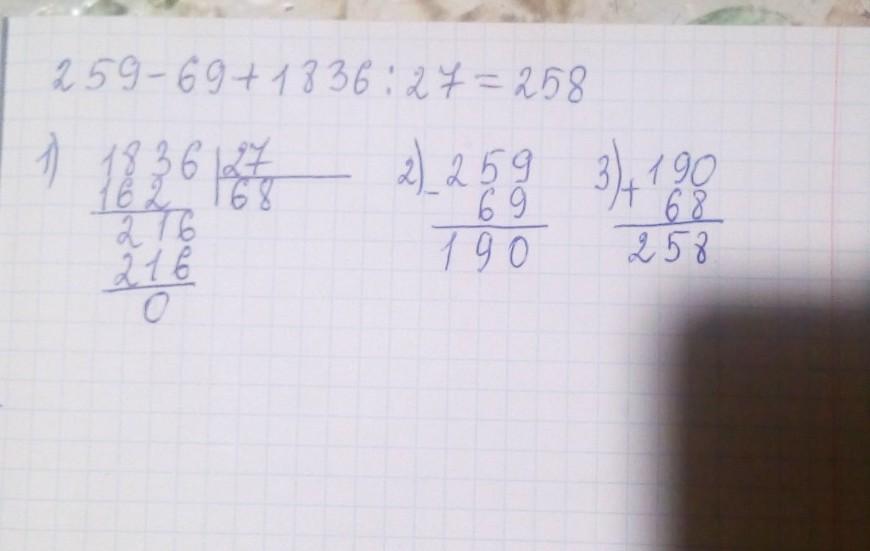 259-69+1836:27=258
1) 1836 27 2) -259 3) +190
162 68 69 68
216 190 258
216
0